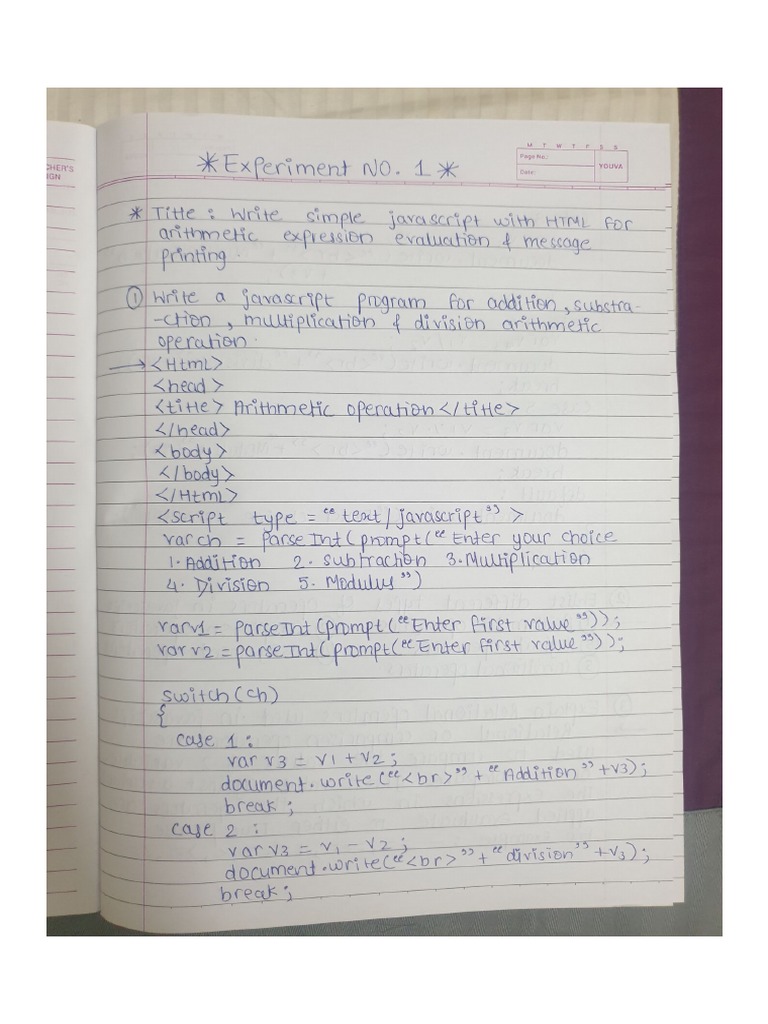 CHER'S
IGN
M T W T F S S
Page No.:
YOUVA
Date:
* Experiment NO. 1 *
* Title : Write simple javascript with HTML for
arithmetic expression evaluation & message
printing.
① Write a javascript program for addition, substra-
-ction, multiplication & division arithmetic
operation.
→ <Html>
<head>
<title> Arithmetic operation </title>
</head>
<body>
</body>
</Html>
<script type = "text/javascript">
var ch = parseInt(prompt("Enter your choice
1. Addition 2. subtraction 3. Multiplication
4. Division 5. Modulus")
var v1 = parseInt(prompt("Enter first value"));
var v2 = parseInt(prompt("Enter first value"));
switch(ch)
{
case 1 :
var v3 = v1 + v2 ;
document.write("<br>" + "Addition" + v3);
break ;
case 2 :
var v3 = v1 - v2 ;
document.write("<br>" + "division" + v3);
break ;